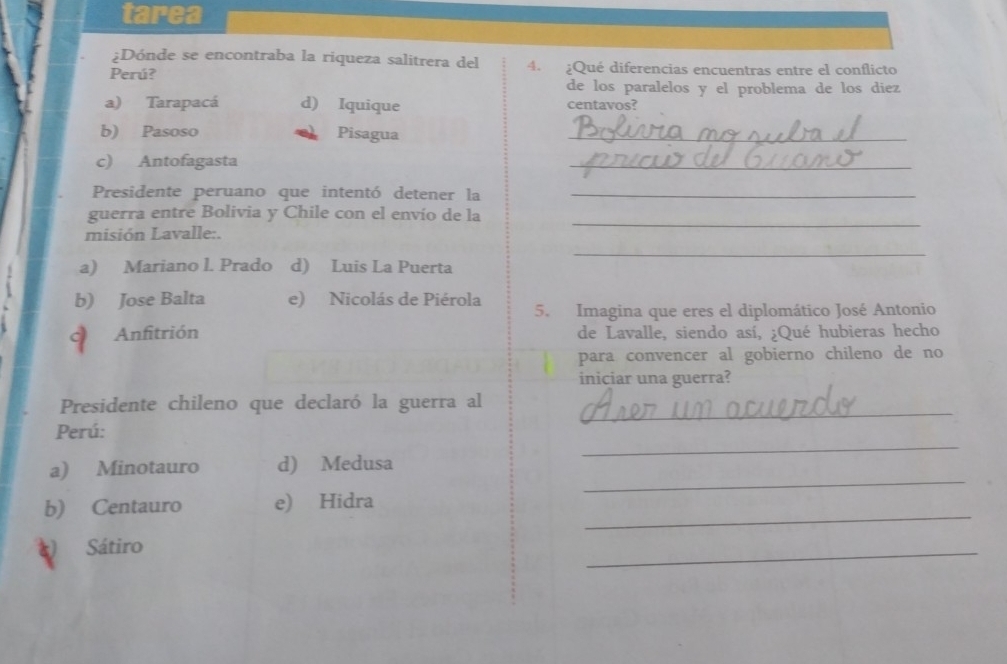 tarea
¿Dónde se encontraba la riqueza salitrera del
Perú?
a) Tarapacá d) Iquique
b) Pasoso Pisagua
c) Antofagasta
Presidente peruano que intentó detener la
guerra entre Bolivia y Chile con el envío de la
misión Lavalle:.
a) Mariano I. Prado d) Luis La Puerta
b) Jose Balta e) Nicolás de Piérola
c) Anfitrión
Presidente chileno que declaró la guerra al
Perú:
a) Minotauro d) Medusa
b) Centauro e) Hidra
c) Sátiro
4. ¿Qué diferencias encuentras entre el conflicto
de los paralelos y el problema de los diez
centavos?
Bolivia no suba el
precio del Guano
5. Imagina que eres el diplomático José Antonio
de Lavalle, siendo así, ¿Qué hubieras hecho
para convencer al gobierno chileno de no
iniciar una guerra?
un acuerdo